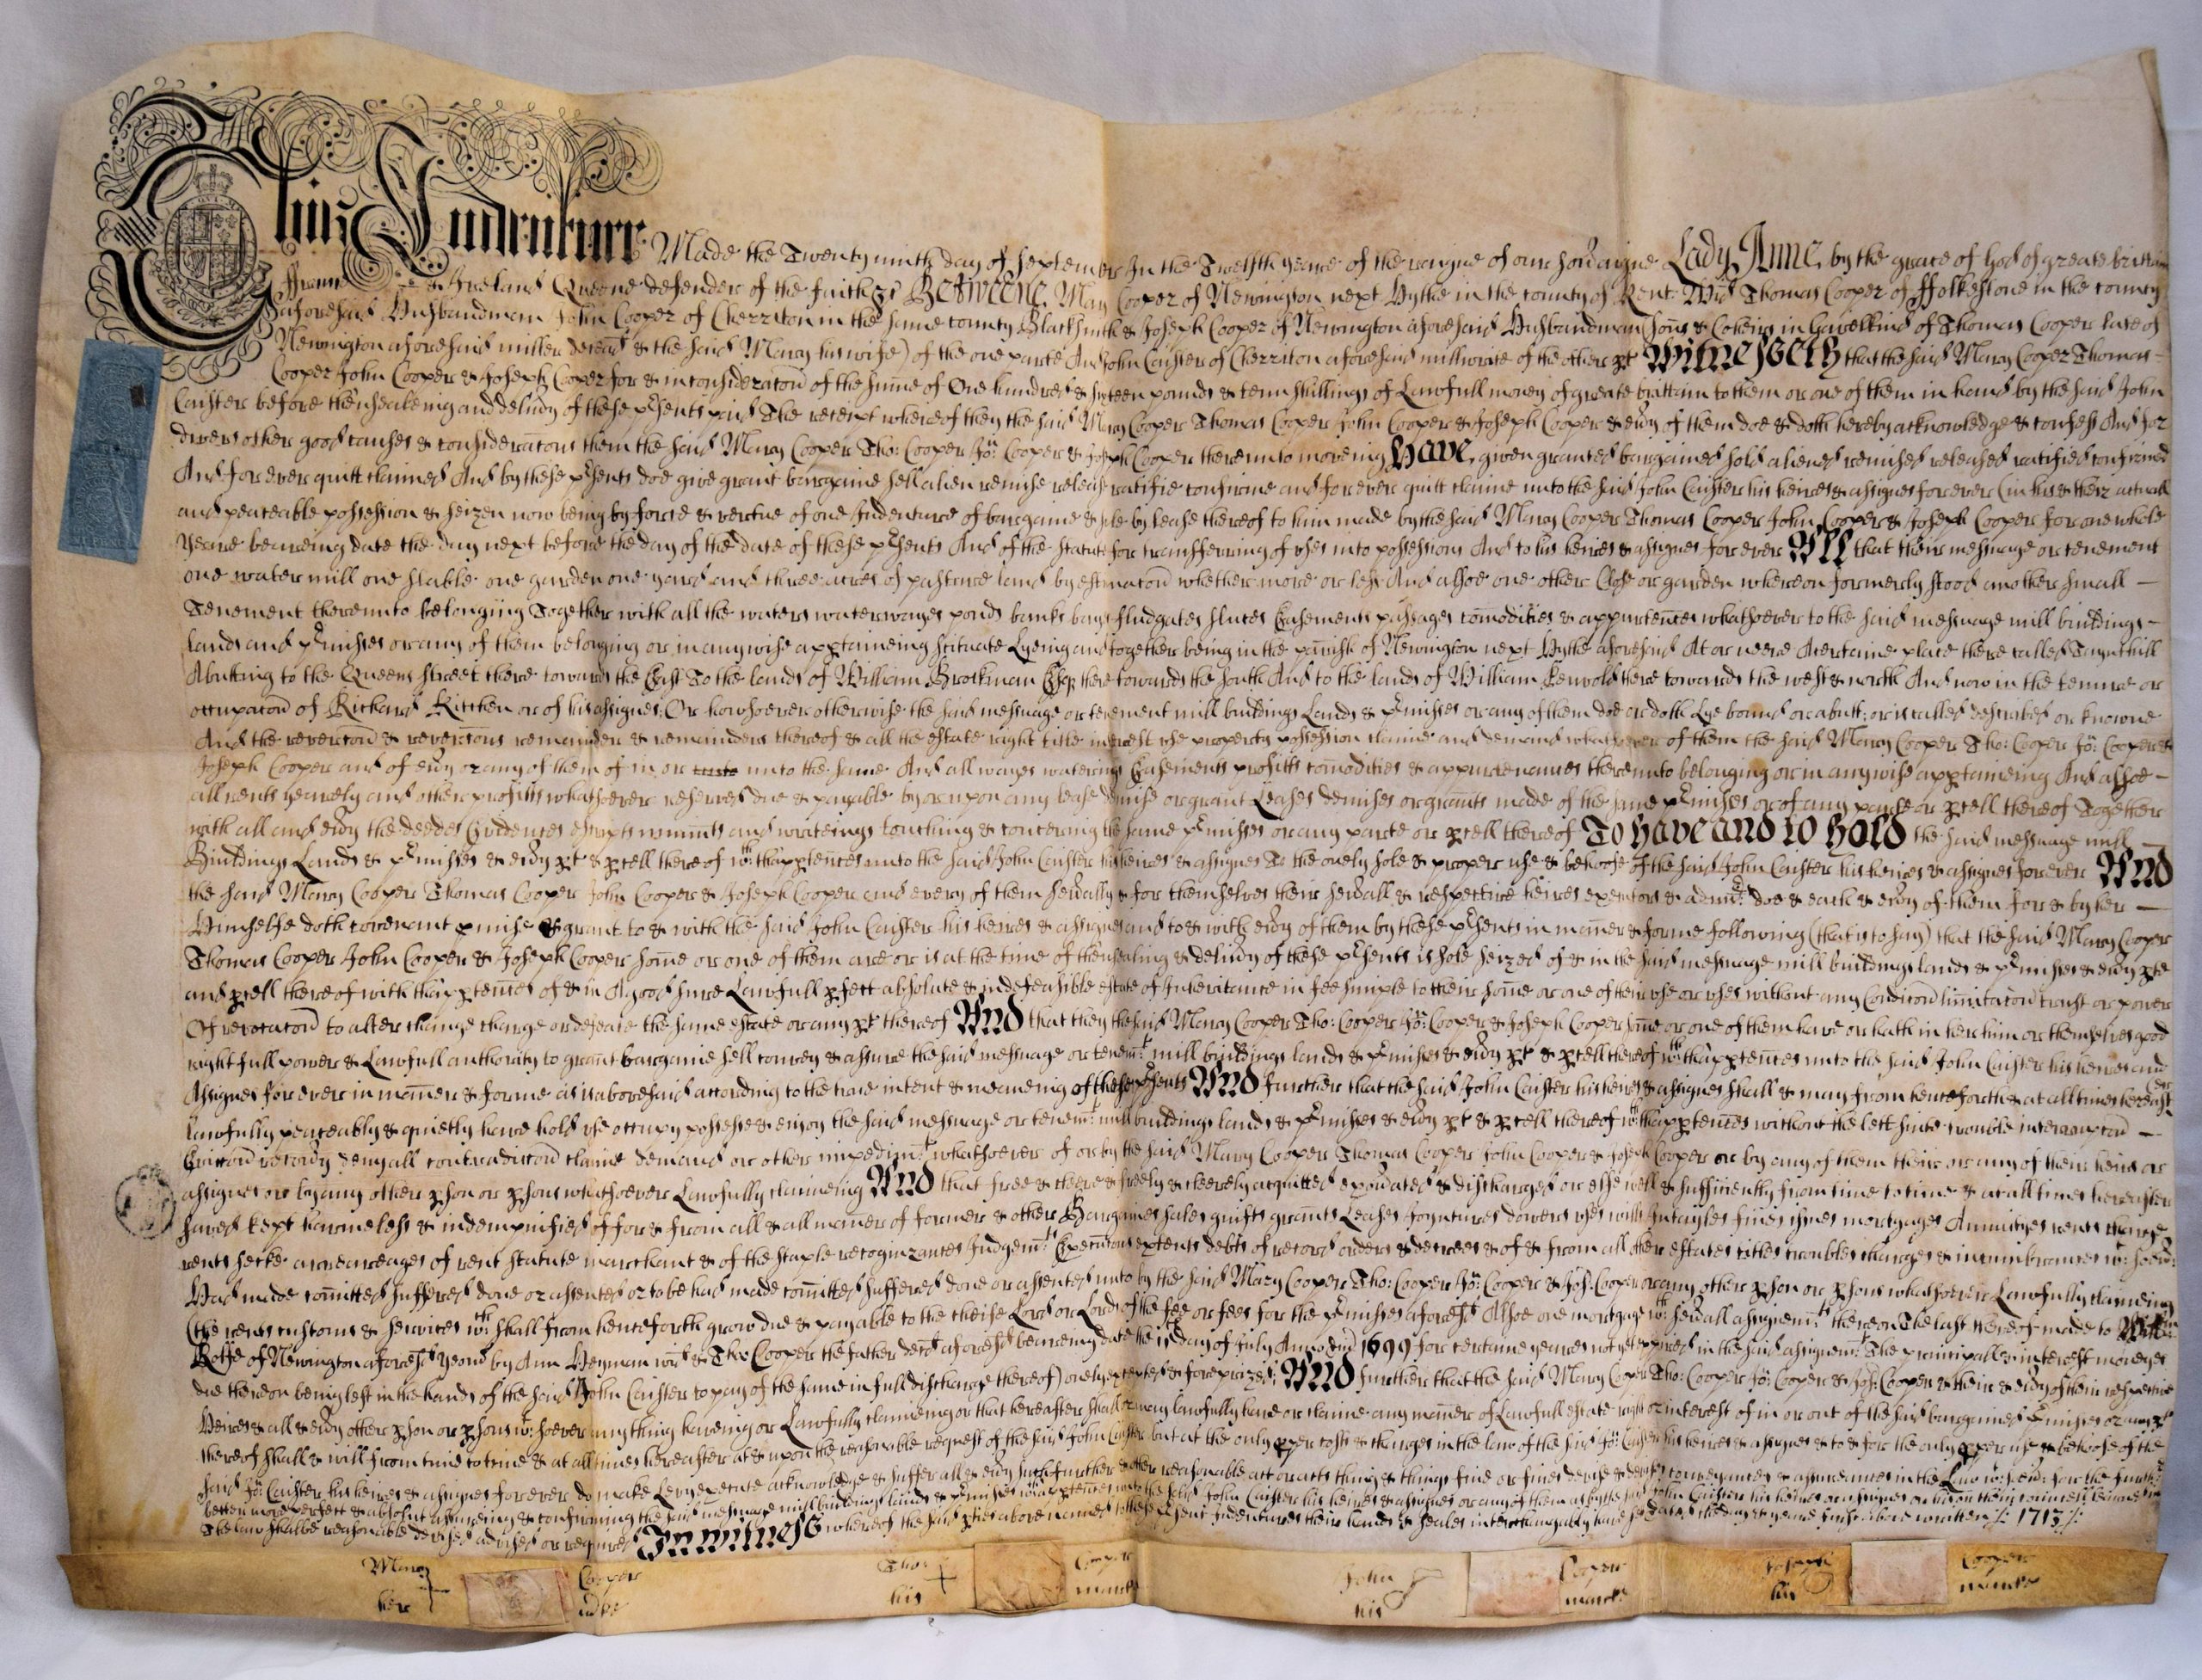 This Indenture Made the Twenty ninth day of September In the Twelfth yeare of the reigne of our Sovraigne Lady Anne by the grace of God of greate brittain
ffrance & Ireland Queene defender of the faith &c Betweene Mary Cooper of Newington next Hythe in the county of Kent Wid Thomas Cooper of ffolkestone in the county
aforesaid Husbandman John Cooper of Cherriton in the same county Blacksmith & Joseph Cooper of Newington aforesaid Husbandman (sons & Coheirs in Gavelkind of Thomas Cooper late of
Newington aforesaid miller deceasd & the said Mary his wife) of the one parte And John Caister of Cherriton aforesaid millwrite of the other pt Witnesseth that the said Mary Cooper Thomas
Cooper John Cooper & Joseph Cooper for & in consideracon of the sume of One hundred & sixteen pounds & tenn shillings of Lawfull money of greate brittain to them or one of them in hand by the said John
Caister before th'ensealeing and delivy of these psents paid The receipt whereof they the said Mary Cooper Thomas Cooper John Cooper & Joseph Cooper & evry of them doe & doth hereby acknowledge & confess And for
divers other good causes & consideracons them the said Mary Cooper Tho: Cooper Jo: Cooper & Joseph Cooper thereunto moveing Have given granted bargained sold aliened remised released ratified confirmed
And for ever quitt claimed And by these psents doe give grant bargaine sell alien remise release ratifie confirme and for ever quitt claime unto the said John Caister his heires & assignes for ever (in his & their actuall
and peaceable possession & seizen now being by force & vertue of one Indenture of bargaine & sale by lease thereof to him made by the said Mary Cooper Thomas Cooper John Cooper & Joseph Cooper for one whole
yeare beareing date the day next before the day of the date of these psents And of the statute for transferring of uses into possessions And to his heires & assignes for ever All that their messuage or tenement
one water mill one stable one garden one yard and three acres of pasture land by estimacon whether more or less And allsoe one other Close or garden whereon formerly stood another small
Tenement thereunto belonging Together with all the waters waterwayes ponds banks bays fludgates sluces Easements passages comodities & appurtences whatsoever to the said messuage mill buildings
lands and pmisses or any of them belonging or in anywise apptaineing scituate Lyeing and together being in the parish of Newington next Hythe aforesaid At or neere a certaine place there called
Abutting to the Queens street there towards the East To the lands of William Brockman Esqr there towards the south And to the lands of William there towards the west & north And now in the tenure or
occupacon of Richard Kitchen or of his assignes Or howsoever otherwise the said messuage or tenement mill buildings Lands & pmisses or any of them doe or doth Lye bound or abutt or is called described or knowne
And the revercon & revercons remainder & remainders thereof & all the estate right title interest use property possession claime and demand whatsoever of them the said Mary Cooper Tho: Cooper Jo: Cooper &
Joseph Cooper and of evry or any of them of in or unto the same And all wayes waterings Easements profitts comodities & appurtenances thereunto belonging or in anywise apptaineing And allsoe
all rents yearely and other profitts whatsoever reserved due & payable by or upon any lease demise or grant Leases demises or grants made of the same pmisses or of any parte or pcell thereof Together
with all and evry the deedes Evidences escripts minumts and writeings touching & concerning the same pmisses or any parte or pcell thereof To have and to hold the said messuage mill
Buildings Lands & pmisses & evry pt & pcell thereof wth th'apptences unto the said John Caister his heires & assignes To the onely sole & proper use & behoofe of the said John Caister his heires & assignes for ever And
the said Mary Cooper Thomas Cooper John Cooper & Joseph Cooper and every of them sevrally & for themselves their sevrall & respective heires executors & admrs doe & each & evry of them for & by her
Himselfe doth covenant pmise & grant to & with the said John Caister his heires & assignes and to & with evry of them by these psents in maner & forme following (that is to say) that the said Mary Cooper
Thomas Cooper John Cooper & Joseph Cooper some or one of them are or is at the time of th'ensealing & delivy of these psents is sole seized of & in the said messuage mill buildings lands & pmisses & evry pte
and pcell thereof with th'apptences of & in A good sure Lawfull pfect absolute & indefeasible estate of Inheritance in fee simple to their some or one of their use or uses without any Condicon limitacon trust or power
Of revocacon to alter change charge or defeate the same estate or any pt thereof And that they the said Mary Cooper Tho: Cooper Jo: Cooper & Joseph Cooper some or one of them have or hath in her him or themselves good
right full power & Lawfull authority to grant bargaine sell convey & assure the said messuage or tenemt mill buildings lands & pmisses & evry pt & pcell thereof wth th'apptences unto the said John Caister his heires and
Assignes for ever in maner & forme as is abovesaid according to the true intent & meaneing of these psents And further that the said John Caister his heires & assignes shall & may from henceforth & at all times hereaft
lawfully peaceably & quietly have hold use occupy possesse & enjoy the said messuage or tenemt mill buildings lands & pmisses & evry pt & pcell thereof wth th'apptences without the lett suite trouble interrupcon
Eviccon recovry denyall contradiccon claime demand or other impedimt whatsoever of or by the said Mary Cooper Thomas Cooper John Cooper & Joseph Cooper or by any of them their or any of their heirs or
assignes or by any other pson or psons whatsoever Lawfully claimeing And that free & cleere & freely & cleerely acquitted exonerated & discharged or else well & sufficiently from time to time & at all times hereafter
saved kept harmeless & indempnified of for & from all & all maner of former & other Bargaines sales guifts grants Leases Joyntures dowers uses wills Intayles fines mortgages Annuityes rents
rents secke arreareages of rent statute marchant & of the staple recognizances Judgemts Execucons extents debts of record orders & decrees & of & from all other estates titles troubles charges & incumbrances
Had made comitted suffered done or assented or to be had made comitted suffered done or assented unto by the said Mary Cooper Tho: Cooper Jo: Cooper & Jos: Cooper or any other pson or psons whatsoever Lawfully claimeing
(the rents customs & services wch shall from henceforth grow due & payable to the cheife Lord or Lords of the fee or fees for the pmisses aforesd Allsoe one mortgage wth sevrall assignemts thereon The last thereof made to
Rolfe of Newington aforesd yeoman by Ann Heyman wid & Tho: Cooper the father decd aforesd beareing date the day of July Anno Dni 1699 for certaine yeares not yet expired in the said assignemt The principall & interest moneyes
due thereon being left in the hands of the said John Caister to pay of the same in full discharge thereof) onely excepted & foreprized And further that the said Mary Cooper Tho: Cooper Jo: Cooper & Jos: Cooper & their & evry of their respective
Heires & all & evry other pson or psons anything haveing or Lawfully claimeing or that hereafter shall or may lawfully have or claime any maner of Lawfull estate right or interest of in or out of the said bargained pmisses or any pt
thereof shall & will from time to time & at all times hereafter at & upon the reasonable request of the said John Caister but at the only pper costs & charges in the law of the said Jo: Caister his heires & assignes & to & for the only pper use & behoofe of the
said Jo: Caister his heires & assignes for ever do make Levy execute acknowledge & suffer all & evry such further & other reasonable act or acts thing & things fine or fines devise & devises conveyances & assurances in the Law for the further
better more perfect & absolut assureing & confirming the said messuage mill buildings lands & pmisses wth apptences unto the said John Caister his heires & assignes or any of them as by the said John Caister his heires or assignes or his or their councell learned in
The law shalbe reasonable devised advised or required In witness whereof the said pties above named to these psent Indentures their hands & seales interchangably have sett dated the day & yeare first above written 1713
Mary Cooper Tho: Cooper John Cooper Joseph Cooper
her his marke his marke his marke